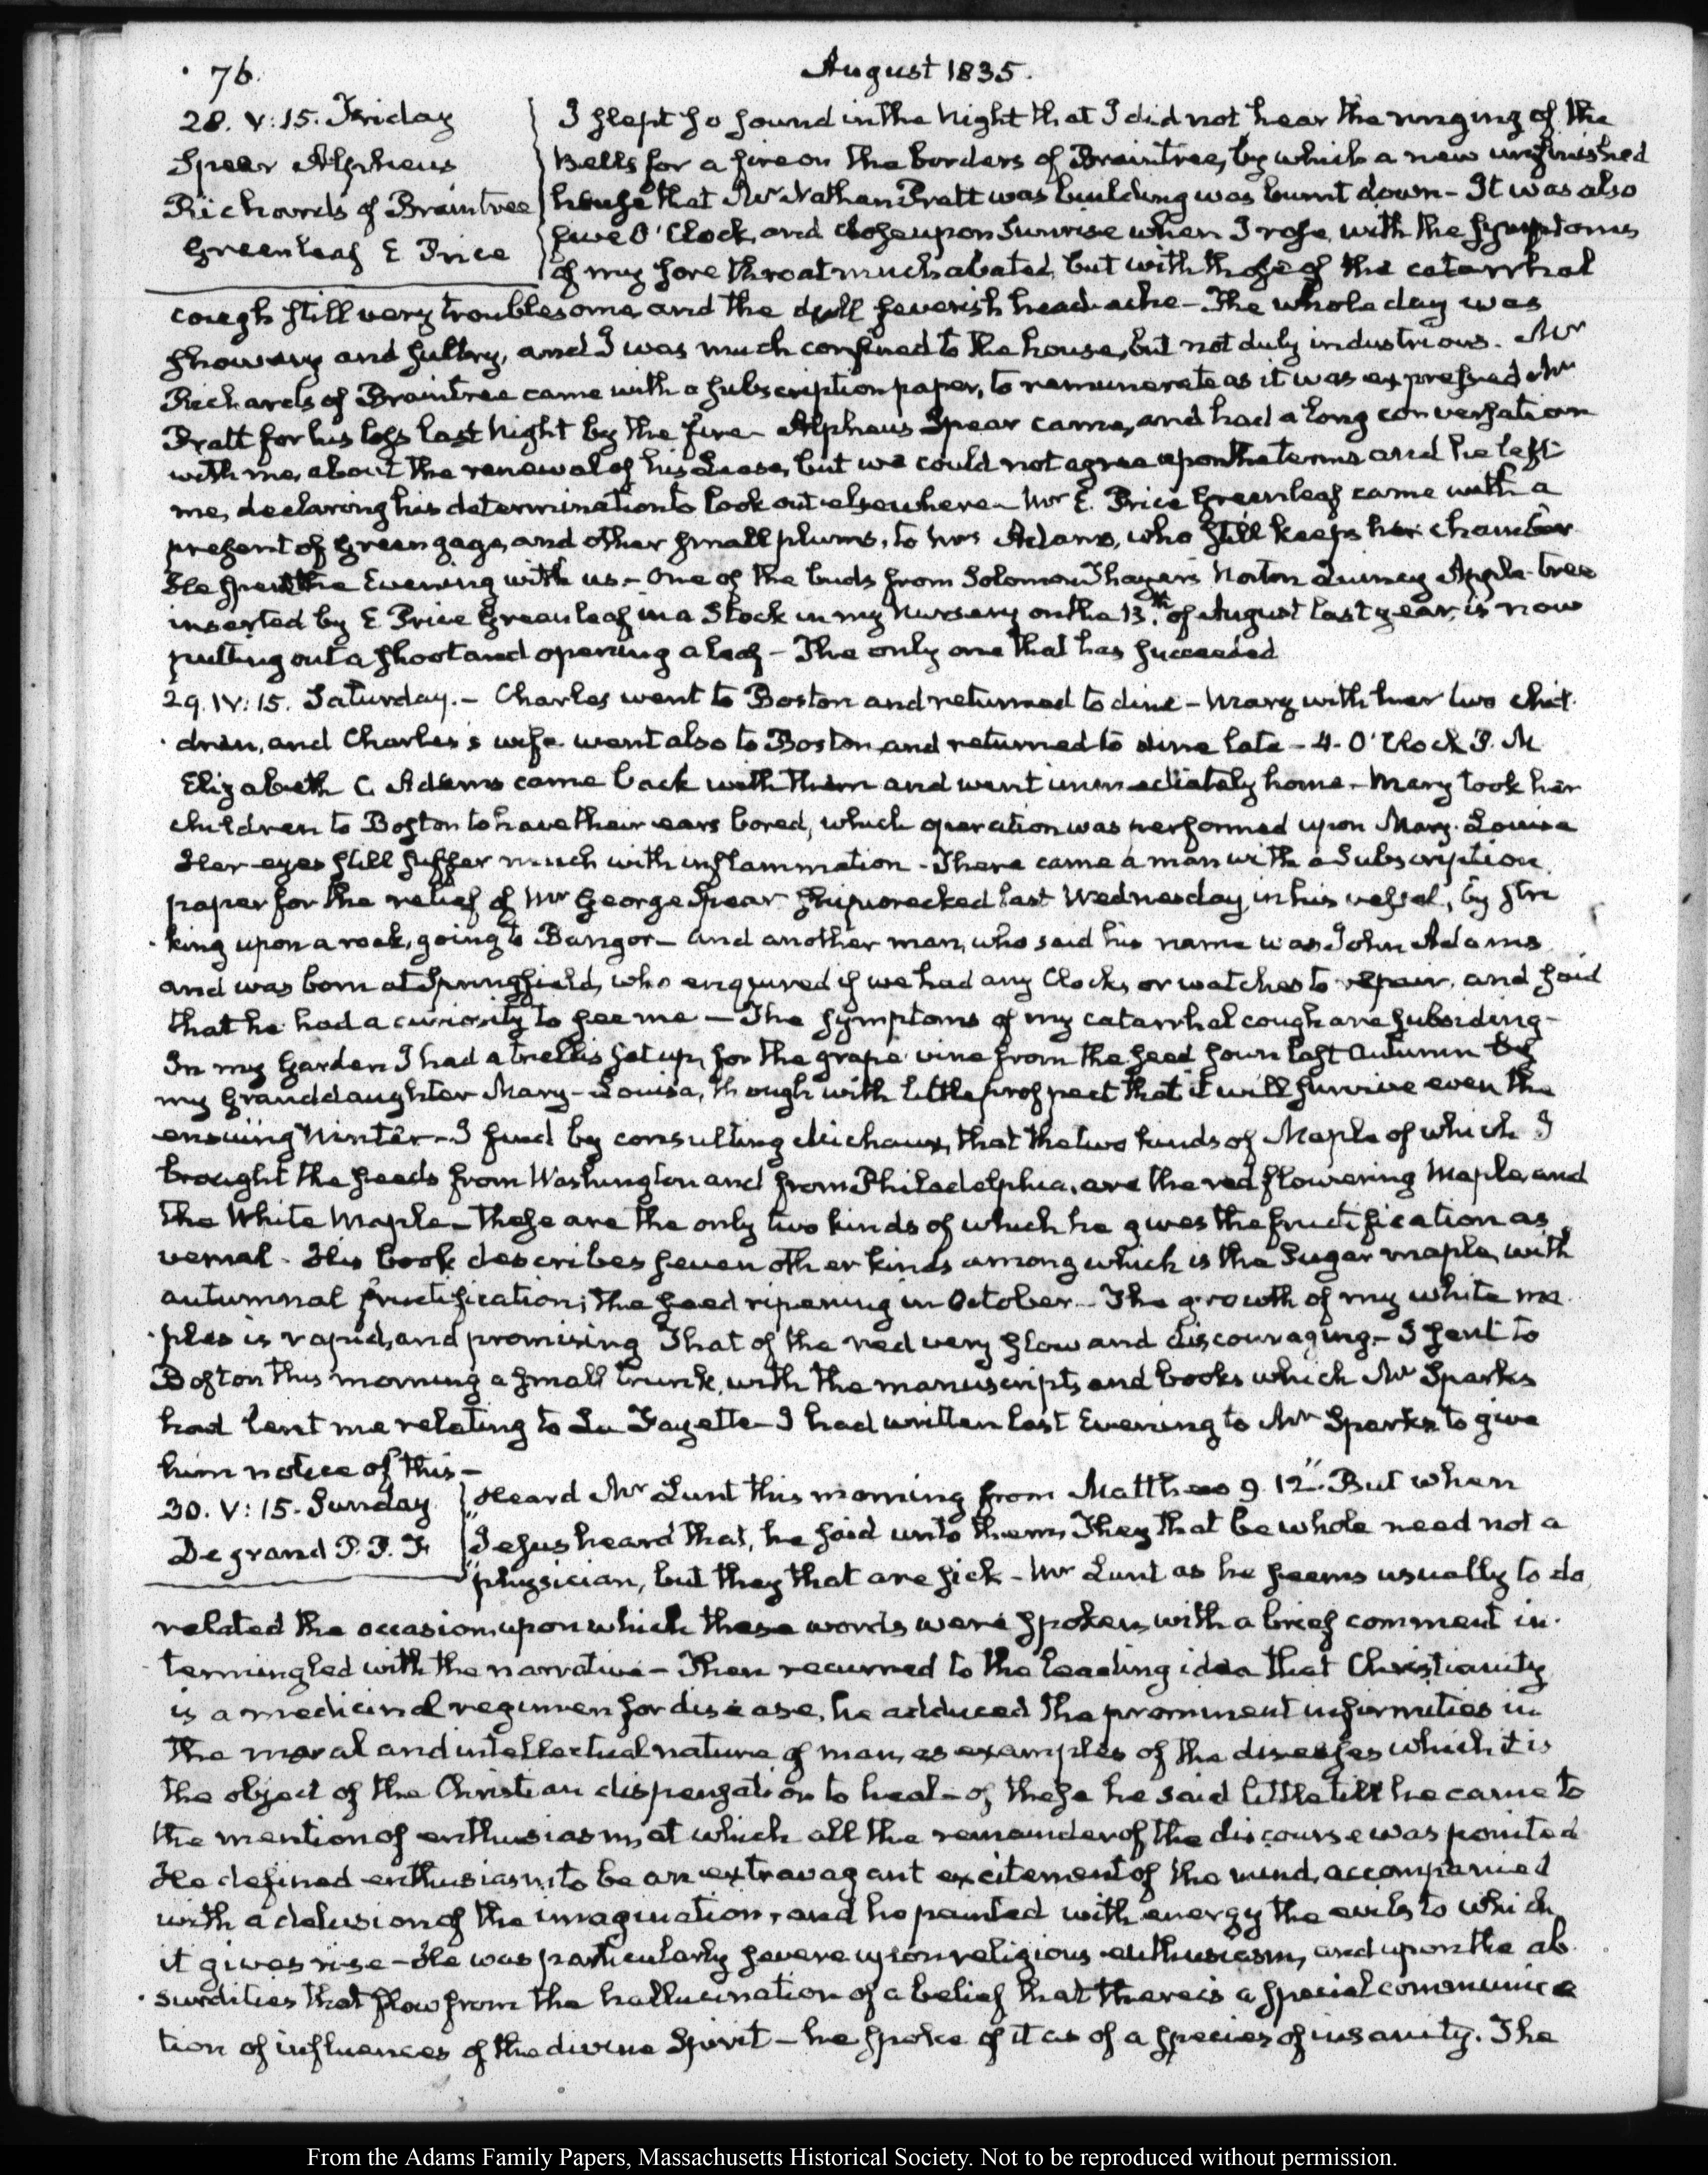 76.
August 1835.
28. V:15. Friday
Spear Alpheus
Richards of Braintree
Greenleaf E Price
I slept so sound in the Night that I did not hear the ringing of the
Bells for a fire on the borders of Braintree, by which a new unfinished
house that Mr Nathan Pratt was building was burnt down - It was also
five O'Clock, and close upon Sunrise when I rose, with the symptoms
of my sore throat much abated, but with those of the catarrhal
cough still very troublesome, and the dull feverish head-ache - The whole day was
showery and sultry, and I was much confined to the house, but not duly industrious. Mr
Richards of Braintree came with a subscription paper, to remunerate as it was expressed Mr
Pratt for his loss last Night by the fire - Alpheus Spear came, and had a long conversation
with me, about the renewal of his Lease, but we could not agree upon the terms and he left
me, declaring his determination to look out elsewhere - Mr E. Price Greenleaf came with a
present of Green gage, and other small plums, to Mrs Adams, who still keeps her chamber
He spent the Evening with us. - One of the buds from Solomon Thayer's Norton Quincy Apple-tree
inserted by E Price Greenleaf in a Stock in my Nursery on the 13th. of August last year, is now
putting out a shoot and opening a leaf - The only one that has succeeded
29. IV:15. Saturday. - Charles went to Boston and returned to dine - Mary with her two chil-
dren, and Charles's wife went also to Boston, and returned to dine late - 4. O'Clock P. M
Elizabeth C. Adams came back with them and went immediately home - Mary took her
children to Boston to have their ears bored, which operation was performed upon Mary-Louisa
Her eyes still suffer much with inflammation - There came a man with a Subscription
paper for the relief of Mr George Spear shipwrecked last Wednesday, in his vessel, by stri
king upon a rock, going to Bangor - and another man, who said his name was John Adams
and was born at Springfield, who enquired if we had any Clocks, or watches to repair, and said
that he had a curiosity to see me - The symptoms of my catarrhal cough are subsiding -
In my Garden I had a trellis set up, for the grape vine from the seed sown last Autumn by
my Granddaughter Mary-Louisa, though with little prospect that it will survive even the
ensuing Winter - I find by consulting Michaux, that the two kinds of Maple of which I
brought the seeds from Washington and from Philadelphia, are the red flowering Maple, and
the White Maple - these are the only two kinds of which he gives the fructification as
vernal - His book describes seven other kinds among which is the Sugar maple, with
autumnal fructification; the seed ripening in October - The growth of my white ma
ples is rapid, and promising That of the red very slow and discouraging - I sent to
Boston this morning a small trunk, with the manuscripts and books which Mr Sparks
had lent me relating to La Fayette - I had written last Evening to Mr Sparks to give
him notice of this -
30. V:15. Sunday
Degrand P. P. F.
Heard Mr Lunt this morning from Matthew 9. 12. "But when
"Jesus heard that, he said unto them, They that be whole need not a
"physician, but they that are sick - Mr Lunt as he seems usually to do,
related the occasion upon which these words were spoken, with a brief comment in-
termingled with the narrative - Then recurred to the leading idea that Christianity
is a medicinal regimen for disease, he adduced the prominent infirmities in
the moral and intellectual nature of man, as examples of the diseases which it is
the object of the Christian dispensation to heal - of these he said little till he came to
the mention of enthusiasm, at which all the remainder of the discourse was pointed
He defined enthusiasm to be an extravagant excitement of the mind, accompanied
with a delusion of the imagination, and he painted with energy the evils to which
it gives rise - He was particularly severe upon religious enthusiasm, and upon the ab-
surdities that flow from the hallucination of a belief that there is a special communica
tion of influences of the divine Spirit - he spoke of it as of a species of insanity. The
From the Adams Family Papers, Massachusetts Historical Society. Not to be reproduced without permission.